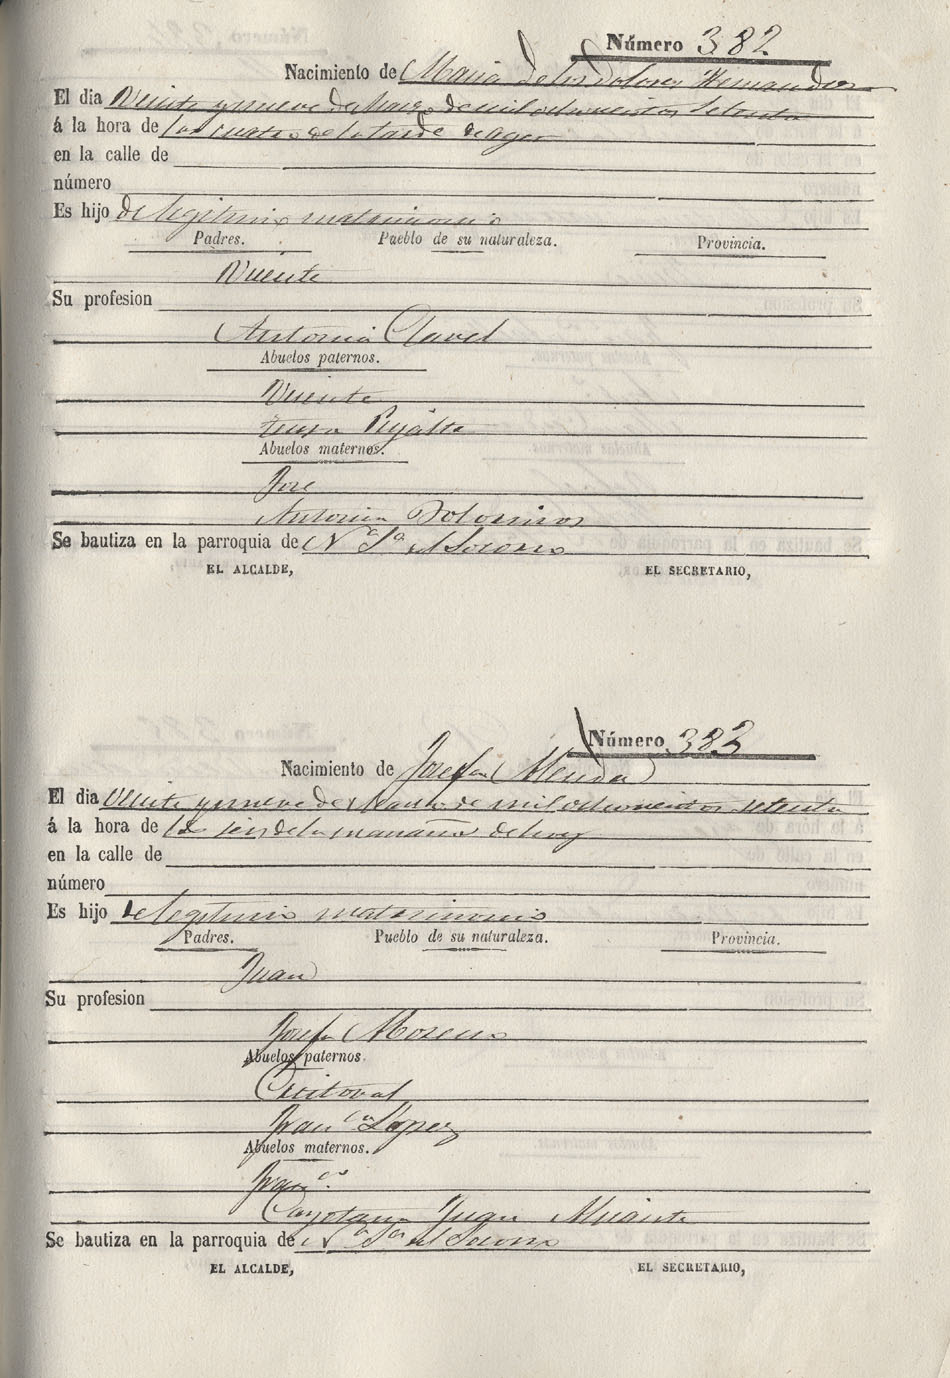 Número 382
Nacimiento de Maria de los Dolores Hernandez
El dia Veinte y nueve de Marzo de mil ochocientos setenta
á la hora de las cuatro de la tarde de ayer
en la calle de
número
Es hijo de legitimo matrimonio
Padres. Pueblo de su naturaleza. Provincia.
Vicente
Su profesion
Antonia Clavel
Abuelos paternos.
Vicente
Teresa
Abuelos maternos.
Jose
Antonia
Se bautiza en la parroquia de Nª Sª del Socorro
EL ALCALDE, EL SECRETARIO,
Número 383
Nacimiento de Josefa
El dia Veinte y nueve de Marzo de mil ochocientos setenta
á la hora de las seis de la mañana de hoy
en la calle de
número
Es hijo de legitimo matrimonio
Padres. Pueblo de su naturaleza. Provincia.
Juan
Su profesion
Josefa Moreno
Abuelos paternos.
Cristoval
Franca Lopez
Abuelos maternos.
Franco
Cayetana Juan
Se bautiza en la parroquia de Nª Sª del Socorro
EL ALCALDE, EL SECRETARIO,